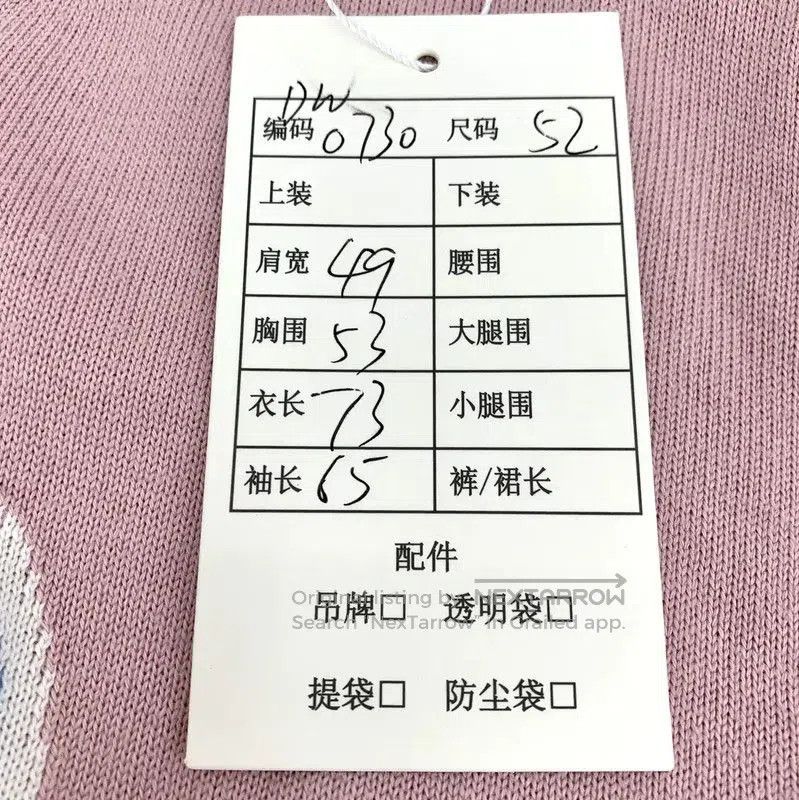 DW
编码 0730 尺码 52
上装 下装
肩宽 49 腰围
胸围 53 大腿围
衣长 73 小腿围
袖长 65 裤/裙长
配件
Original listing by NEXTARROW
吊牌□ 透明袋□
Search "NexTarrow" in Grailed app.
提袋□ 防尘袋□